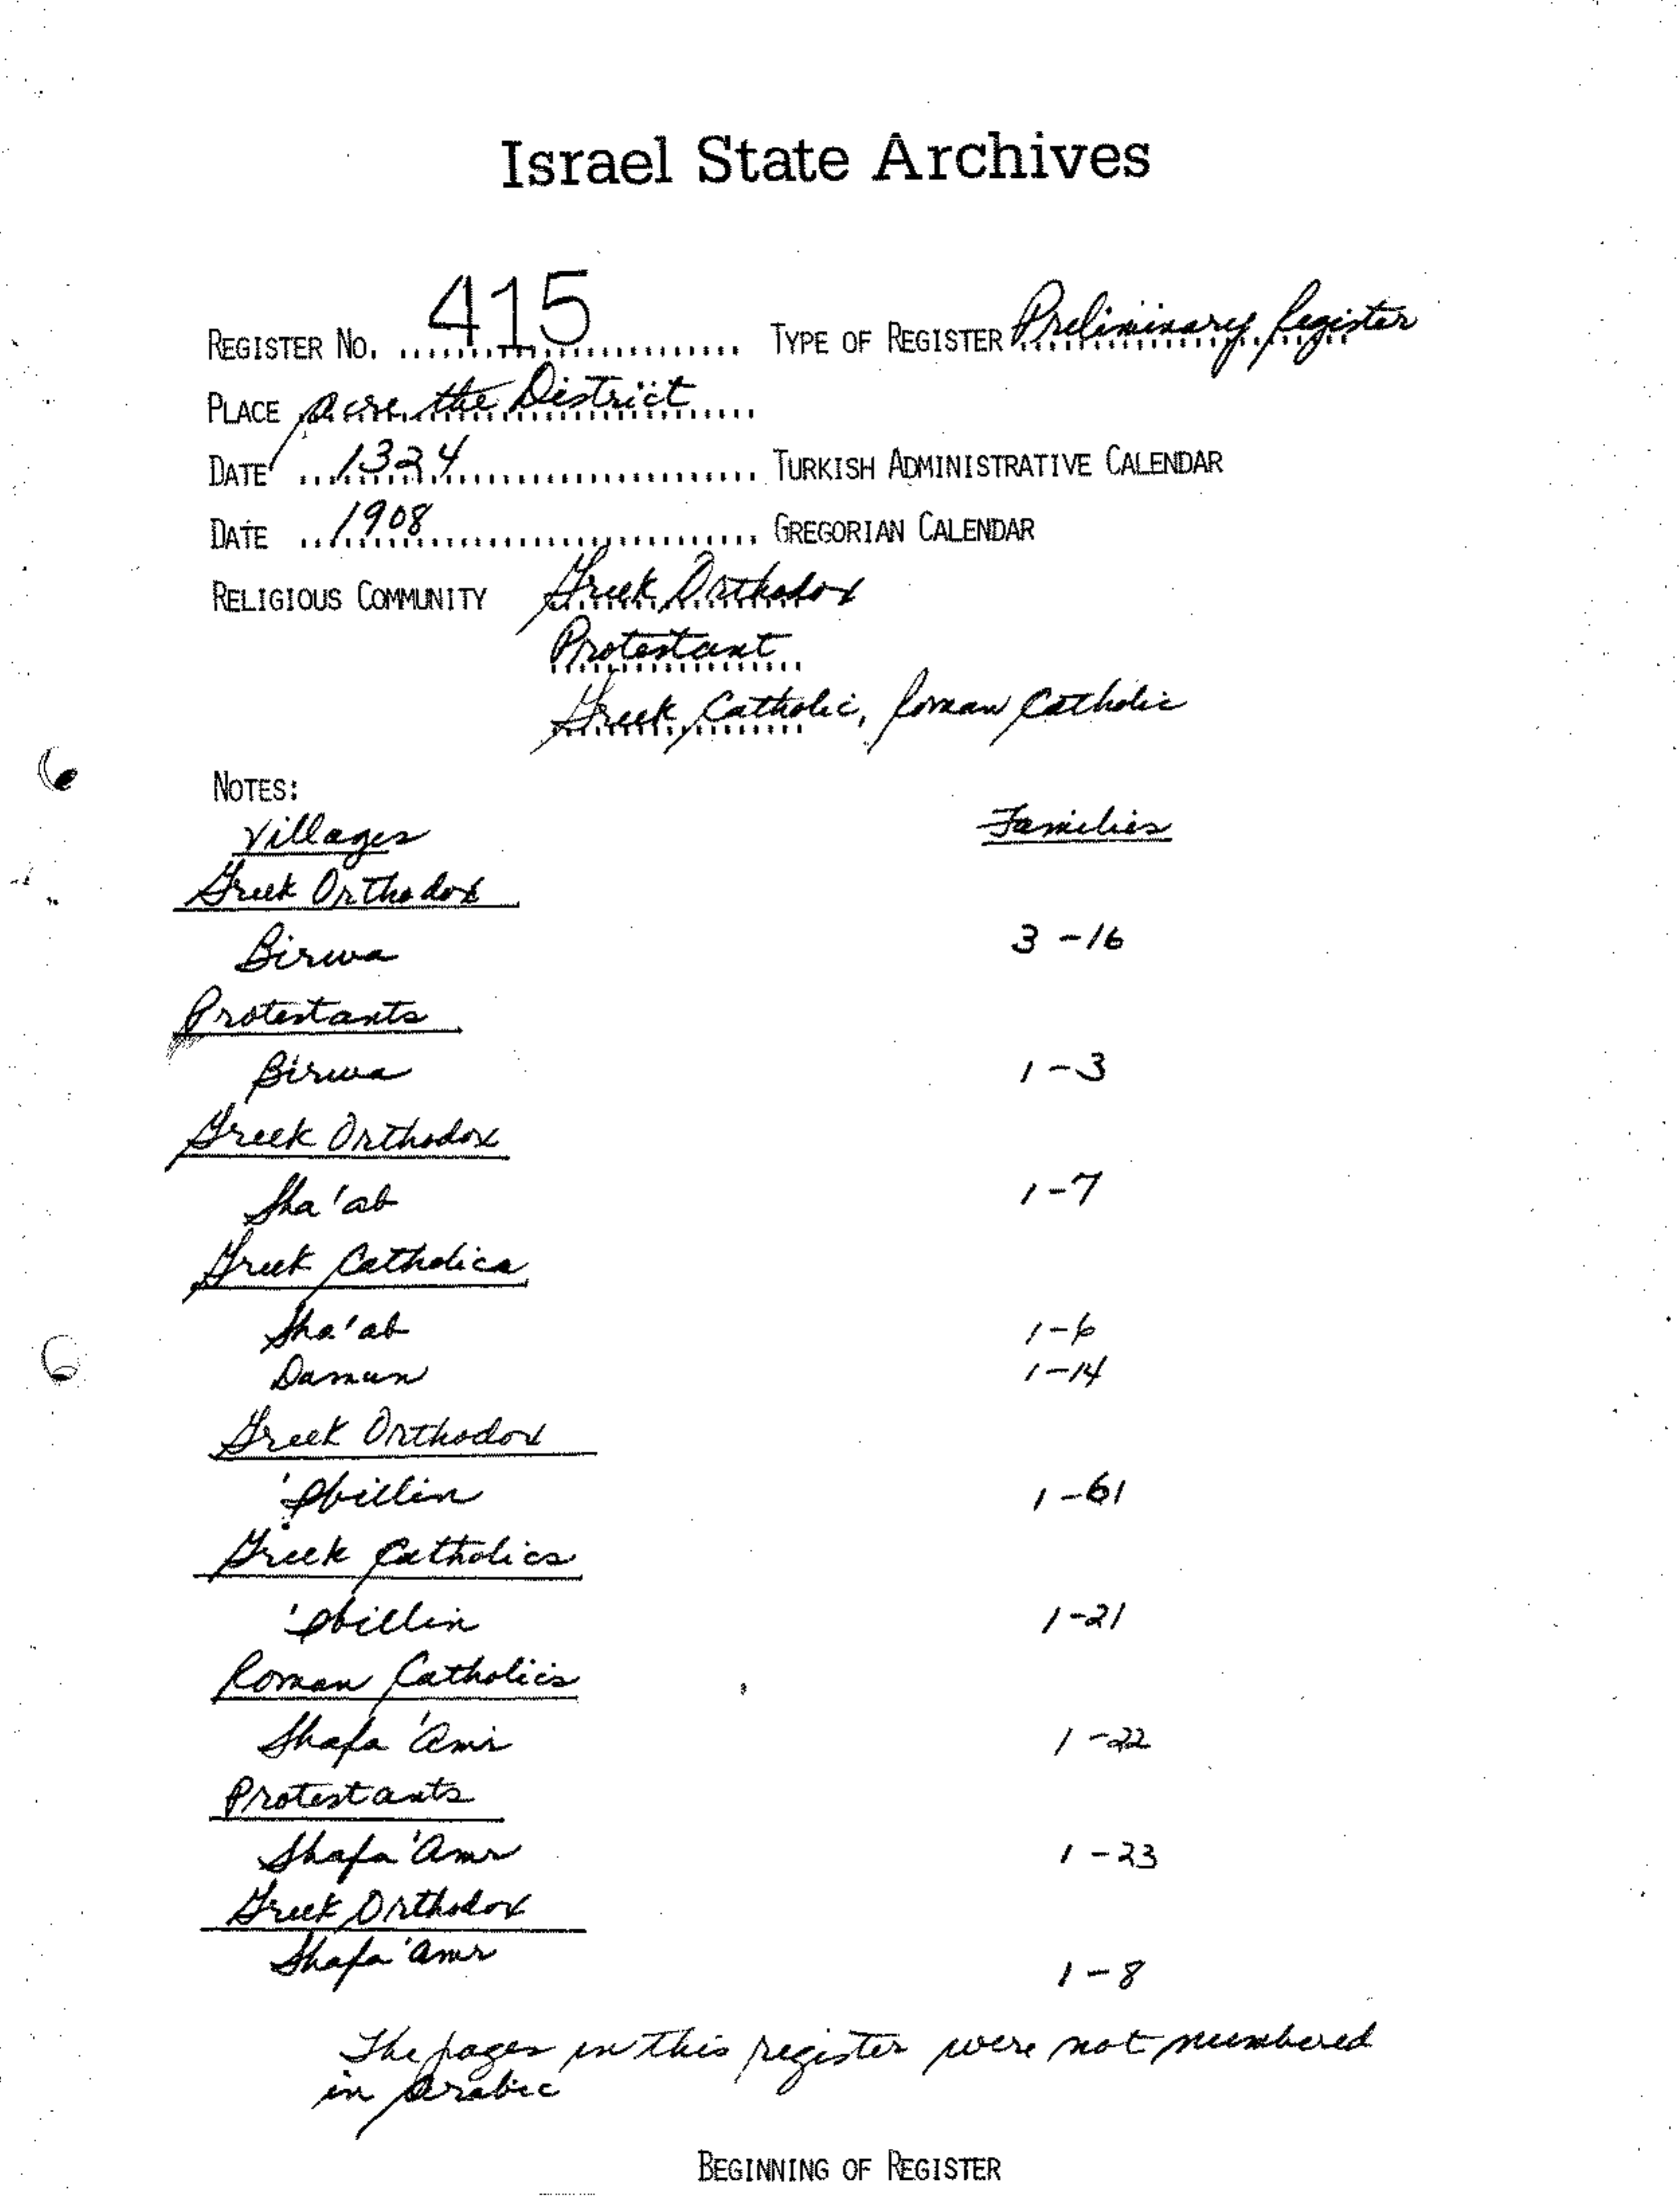 Israel State Archives
REGISTER NO. 415 TYPE OF REGISTER Preliminary Register
PLACE Acre, the District
DATE 1324 TURKISH ADMINISTRATIVE CALENDAR
DATE 1908 GREGORIAN CALENDAR
RELIGIOUS COMMUNITY Greek Orthodox
Protestant
Greek Catholic, Roman Catholic
NOTES:
Villages Families
Greek Orthodox
Birwa 3-16
Protestants
Birwa 1-3
Greek Orthodox
Sha'ab 1-7
Greek Catholics
Sha'ab 1-6
Damun 1-14
Greek Orthodox
'Ibillin 1-61
Greek Catholics
'Ibillin 1-21
Roman Catholics
Shafa 'Amr 1-22
Protestants
Shafa 'Amr 1-23
Greek Orthodox
Shafa 'Amr 1-8
The pages in this register were not numbered
in Arabic
BEGINNING OF REGISTER